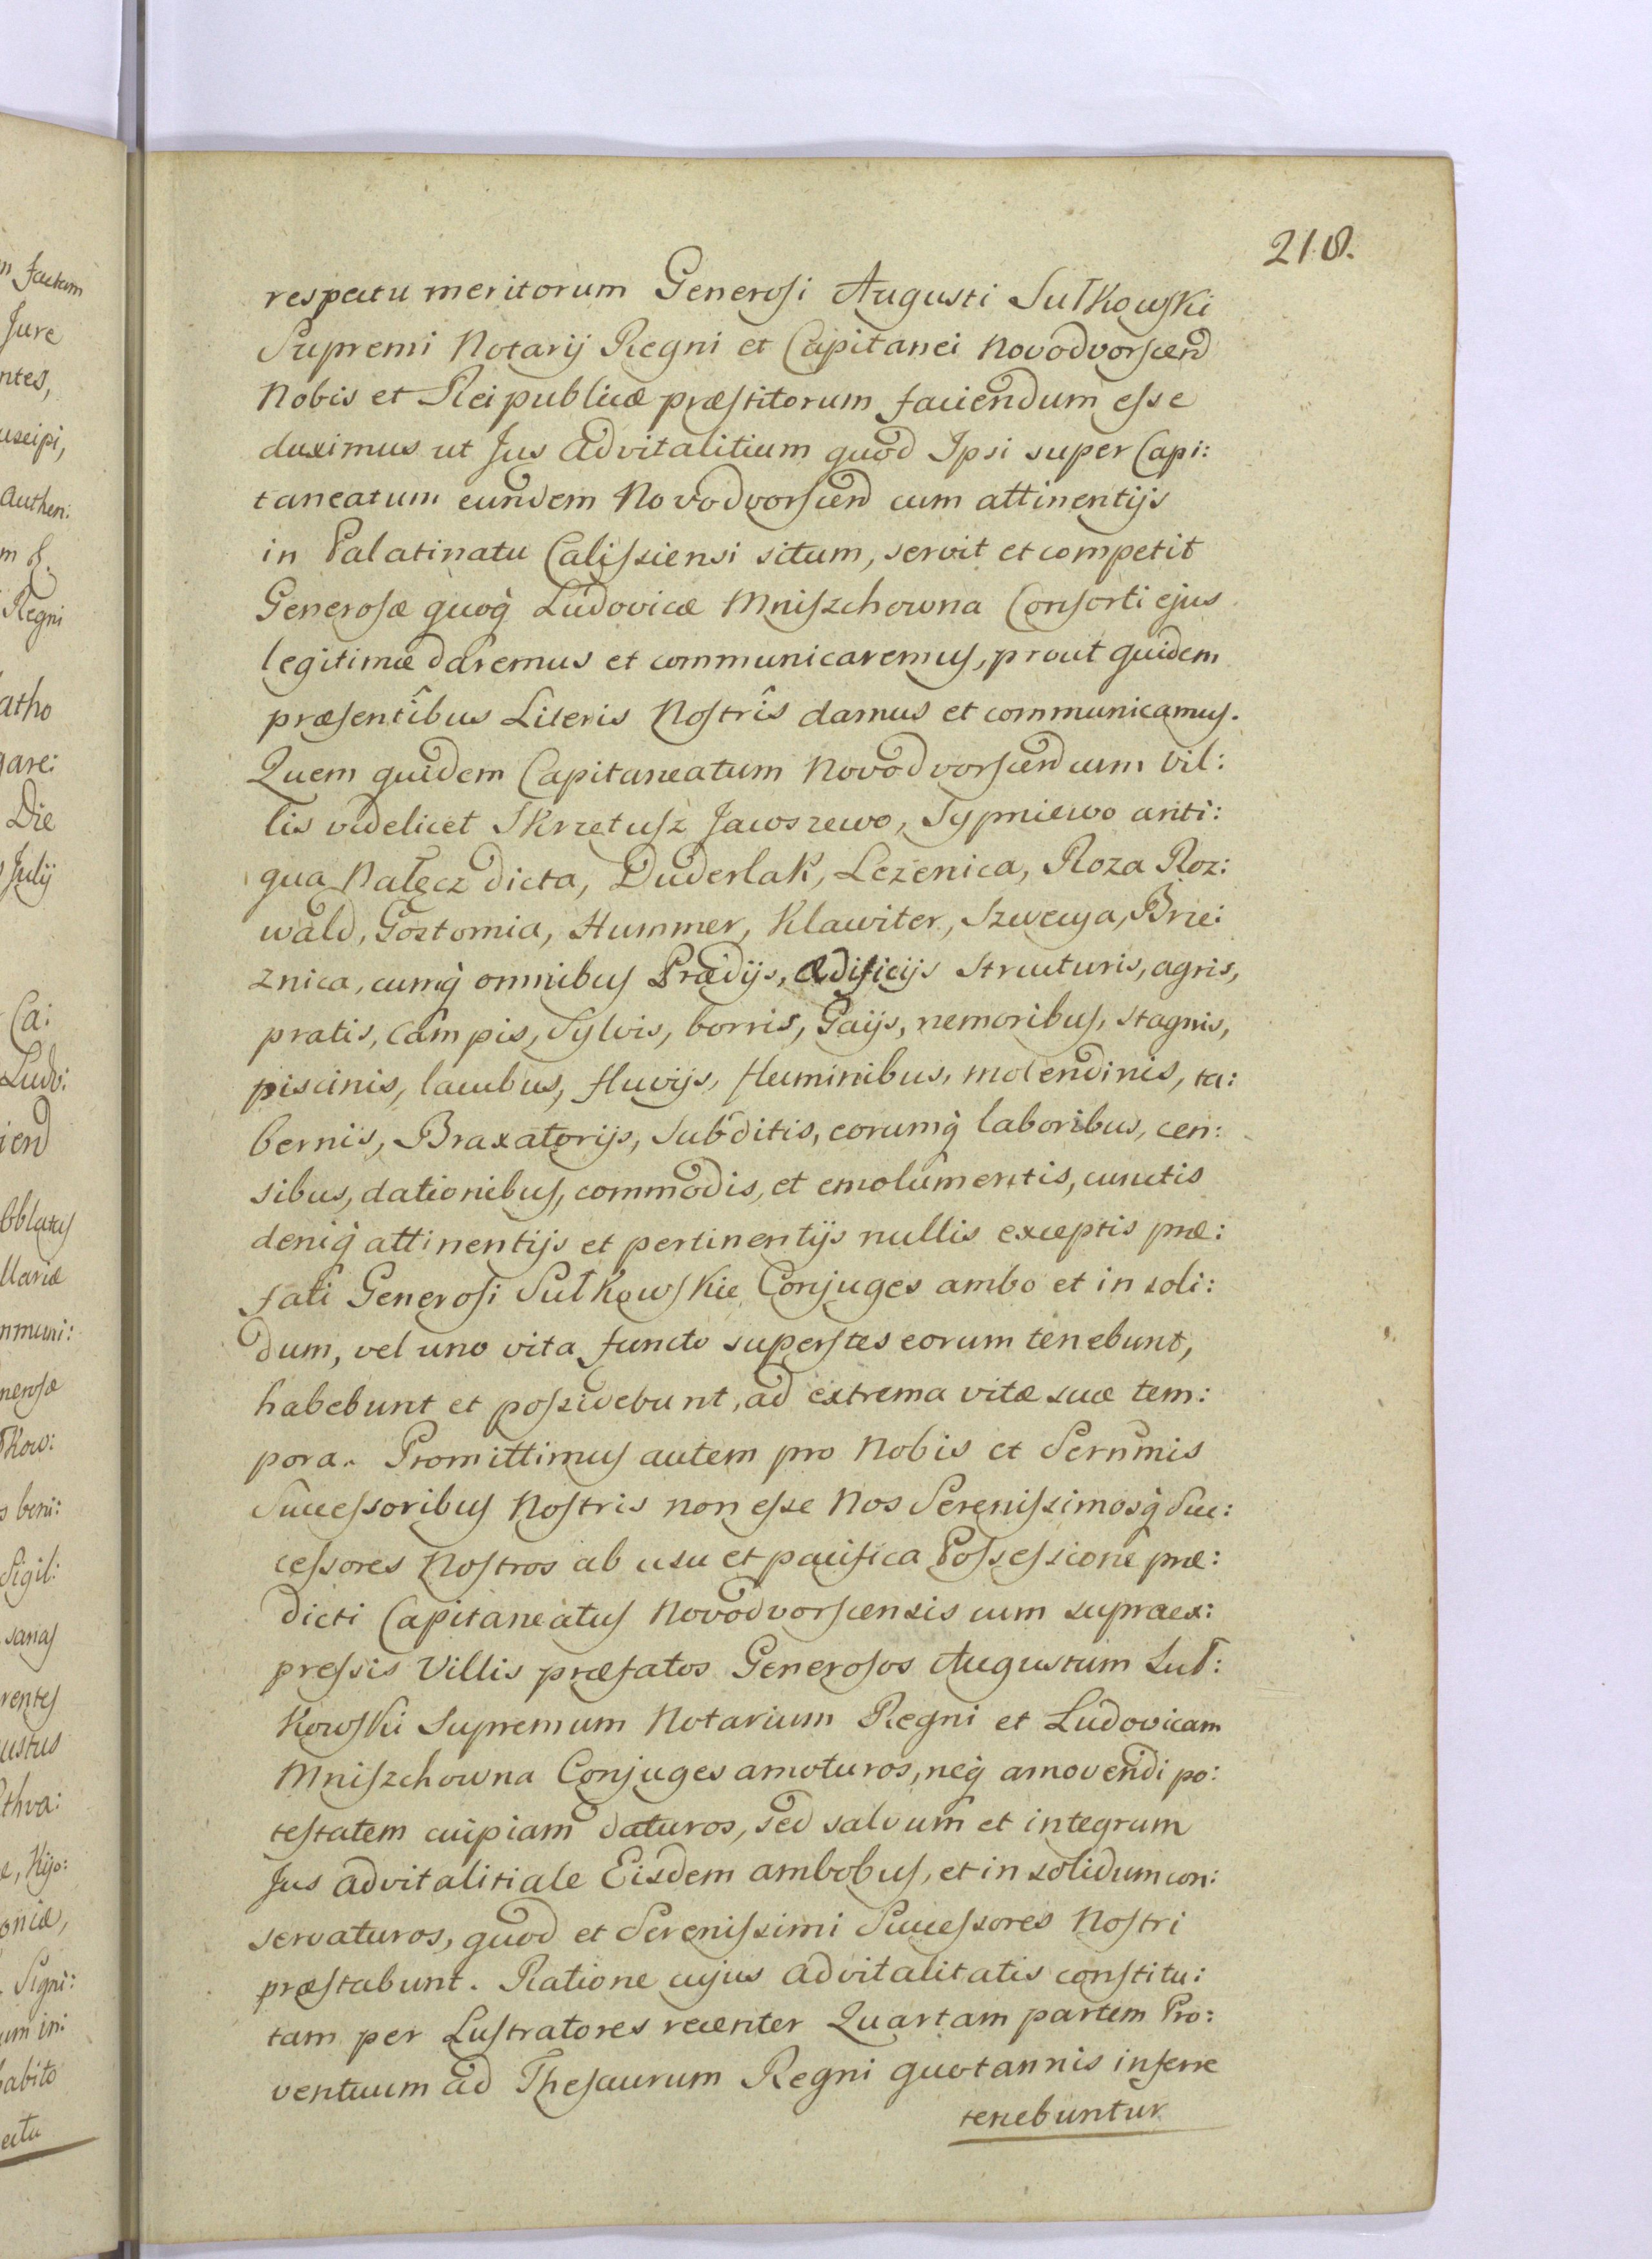 218.
respectu meritorum Generosi Augusti Sułkowski
Supremi Notarij Regni et Capitanei Novodvorscen̄
Nobis et Reipublicæ præstitorum faciendum esse
duximus ut Jus Advitalitium quod Ipsi super Capi:
taneatum eundem Novodvorscen̄ cum attinentijs
in Palatinatu Calissiensi situm, servit et competit
Generosæ quoq̀ Ludovicæ Mniszchowna Consorti ejus
legitimæ daremus et communicaremus, prout quidem
præsentibus Literis Nostris damus et communicamus.
Quem quidem Capitaneatum Novodvorscen̄ cum Vil:
lis videlicet Skrzetusz Jawszewo, Sypniewo anti:
qua Nałęcz dicta, Duderlak, Lezenica, Roza Roz:
wald, Gostomia, Hummer, Klawiter, Szwecya, Brze:
znica, cumq̀ omnibus Prædijs, Ædificijs structuris, agris,
pratis, campis, Sylvis, borris, Gaijs, nemoribus, stagnis,
piscinis, lacubus, fluvijs, fluminibus, molendinis, ta:
bernis, Braxatorijs, Subditis, eorumq̀ laboribus, cen:
sibus, dationibus, commodis, et emolumentis, cunctis
deniq̀ attinentijs et pertinentijs nullis exceptis præ:
fati Generosi Sułkowskie Conjuges ambo et in soli:
dum, vel uno vita functo superstes eorum tenebunt,
habebunt et possidebunt, ad extrema vitæ suæ tem:
pora. Promittimus autem pro Nobis et Sernmis
Successoribus Nostris non esse Nos Serenissimosq̀ Suc:
cessores Nostros ab usu et pacifica Possessione præ:
dicti Capitaneatus Novodvorscensis cum supraex:
pressis Villis præfatos Generosos Augustum Suł:
kowski Supremum Notarium Regni et Ludovicam
Mniszchowna Conjuges amoturos, neq̀ amovendi po:
testatem cuipiam daturos, sed salvum et integrum
Jus advitalitiale Eisdem ambobus, et in solidum con:
servaturos, quod et Serenissimi Successores Nostri
præstabunt. Ratione cujus advitalitatis constitu:
tam per Lustratores recenter Quartam partem Pro:
ventuum ad Thesaurum Regni quotannis inferre
tenebuntur